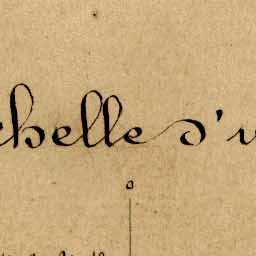 chelle d'u
o